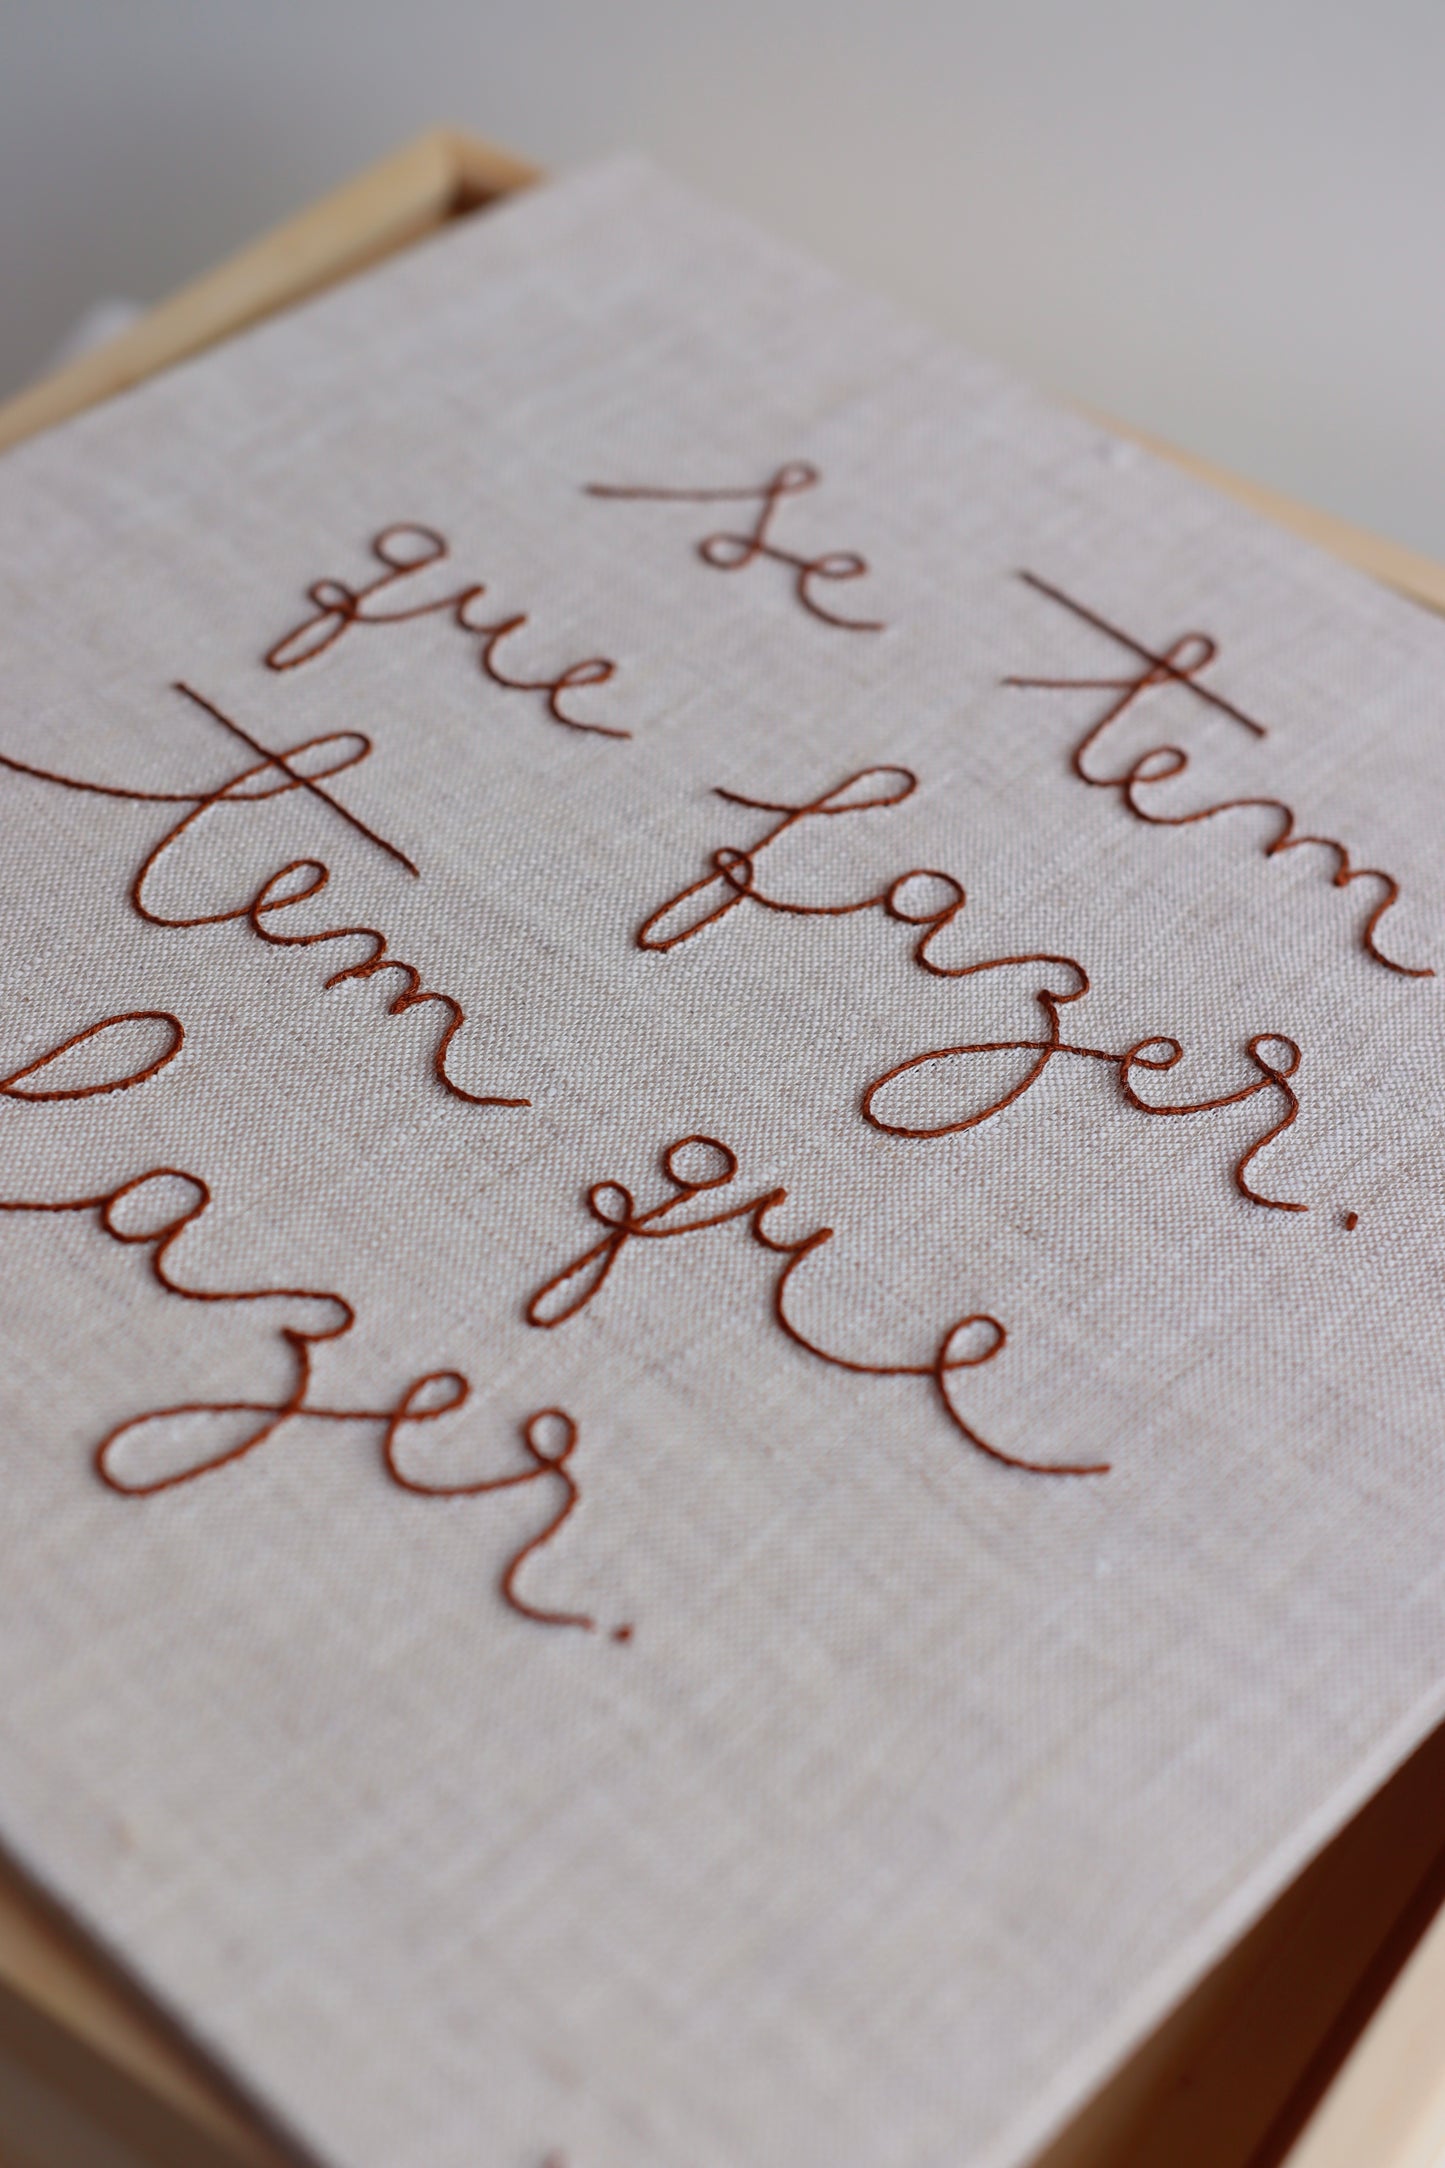 se tem
que fazer.
tem que
fazer.